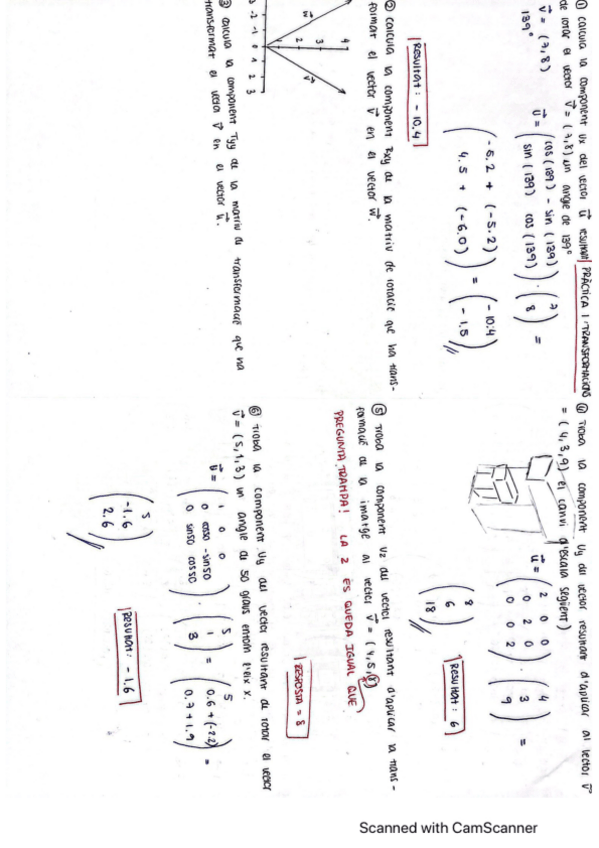 PRÀCTICA 1 TRANSFORMACIONS
① calcula la component Ux del vector u⃗ resultant
de rotar el vector v⃗ = (7,8) un angle de 139°
v⃗ = (7,8)
139°
u⃗ = (cos(139) - sin(139)) · (7) =
(sin(139) cos(139)) (8)
(-5.2 + (-5.2)) = (-10.4)
(4.5 + (-6.0)) (-1.5)
Resultat: -10.4
② calcula la component Rxy de la matriu de rotació que ha trans-
format el vector v⃗ en el vector w⃗.
w⃗
v⃗
-2 -1 0 1 2 3
2 3 4
③ calcula la component Tyy de la matriu de transformació que ha
transformat el vector v⃗ en el vector u⃗.
④ Troba la component Uy del vector resultant d'aplicar al vector v⃗
= (4,3,9) el canvi d'escala següent)
u⃗ = (2 0 0) (4)
(0 2 0) · (3) =
(0 0 2) (9)
(8)
(6)
(18)
Resultat: 6
⑤ Troba la component Uz del vector resultant d'aplicar la trans-
formació de la imatge al vector v⃗ = (4,5,8)
PREGUNTA TRAMPA! LA Z ES QUEDA IGUAL QUE
RESPOSTA = 8
⑥ Troba la component Uy del vector resultant de rotar el vector
v⃗ = (5,1,3) un angle de 50 graus entorn l'eix x.
u⃗ = (1 0 0) (5) (5)
(0 cos50 -sin50) · (1) = (0.6+(-2.2)) =
(0 sin50 cos50) (3) (0.7+1.9)
(5)
(-1.6)
(2.6)
Resultat: -1,6
Scanned with CamScanner